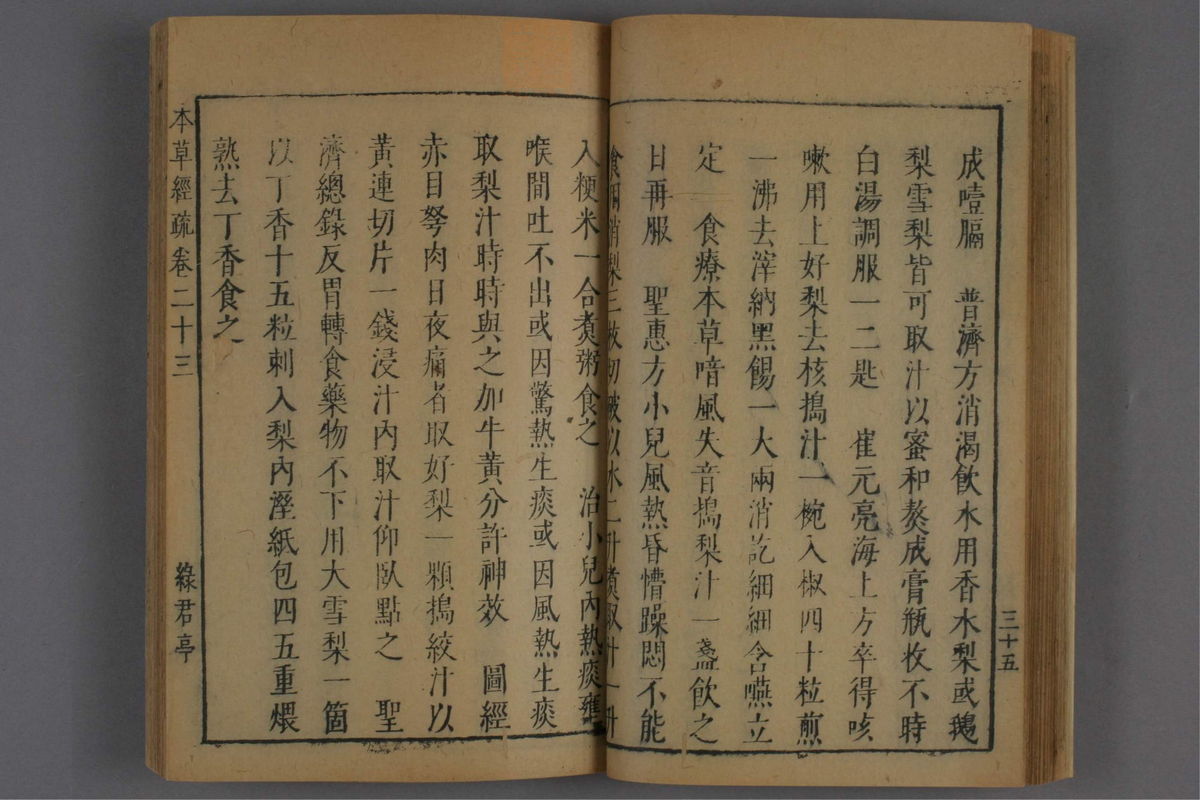 成噎膈　普濟方消渴飲水用香水梨或鵝
梨雪梨皆可取汁以蜜和熬成膏瓶收不時
白湯調服一二匙　崔元亮海上方卒得咳
嗽用上好梨去核搗汁一椀入椒四十粒煎
一沸去滓納黑餳一大兩消訖細細含嚥立
定　食療本草喑風失音搗梨汁一盞飲之
日再服　聖惠方小兒風熱昏懵躁悶不能
食用消梨三枚切破以水二升煮取汁一升
入粳米一合煮粥食之　治小兒內熱痰壅
喉間吐不出或因驚熱生痰或因風熱生痰
取梨汁時時與之加牛黃分許神效　圖經
赤目弩肉日夜痛者取好梨一顆搗絞汁以
黃連切片一錢浸汁內取汁仰臥點之　聖
濟總錄反胃轉食藥物不下用大雪梨一箇
以丁香十五粒刺入梨內溼紙包四五重煨
熟去丁香食之
三十五
本草經疏卷二十三
綠君亭